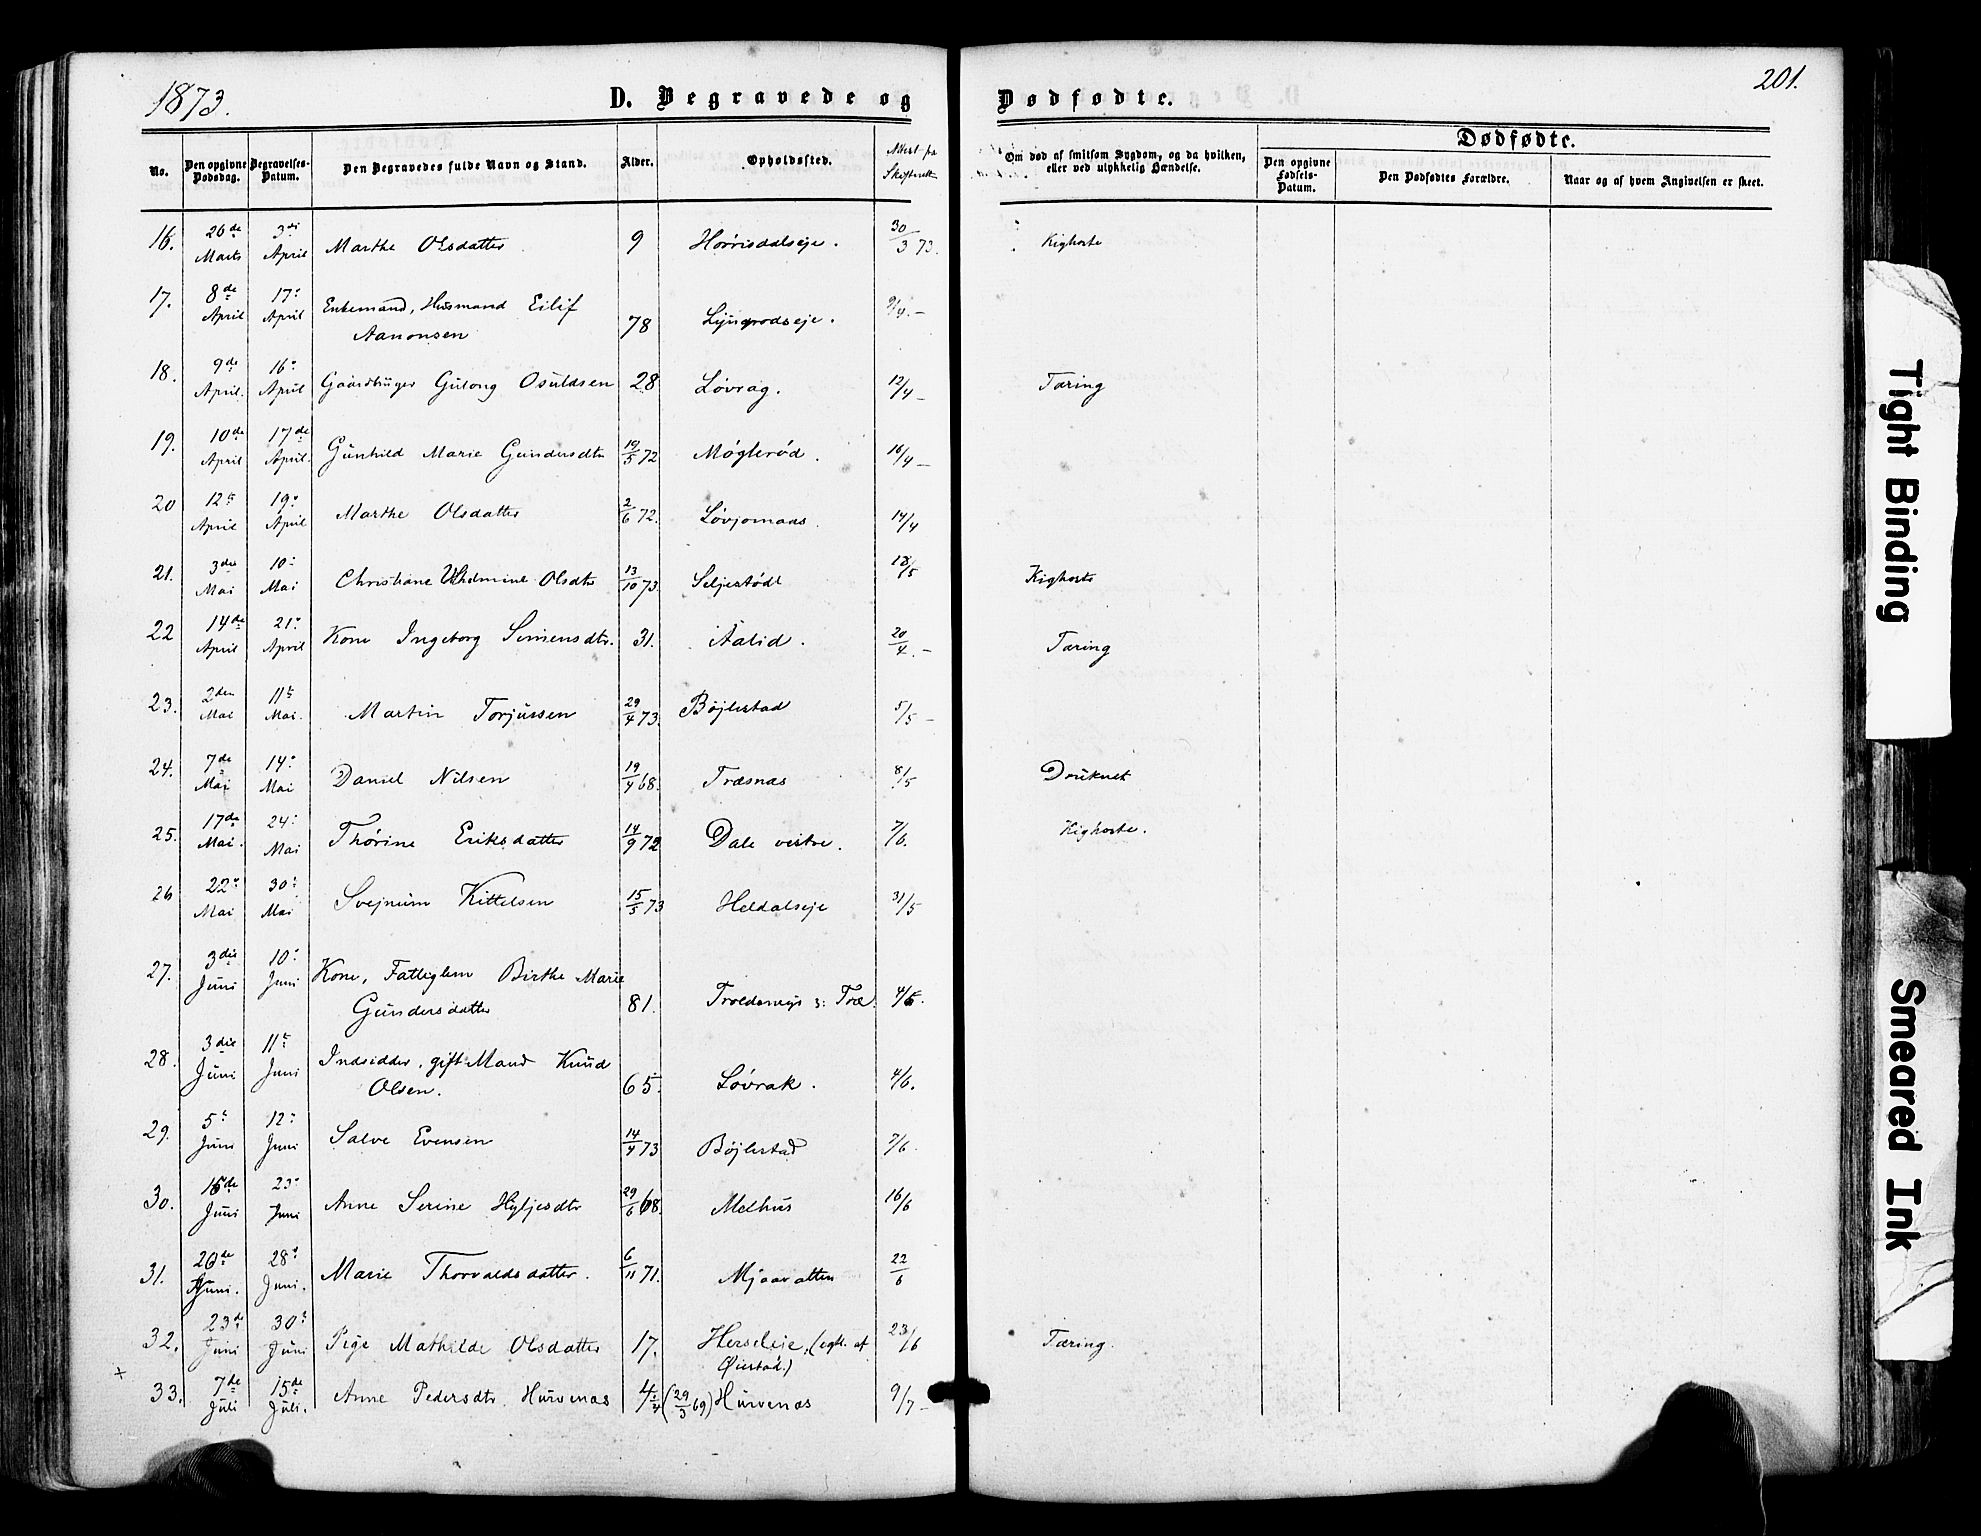 1873.
D. Begravede og
Dødfødte.
201.
No.
Den opgivne Dødsdag.
Begravelses-Datum.
Den Begravedes fulde Navn og Stand.
Alder.
Opholdssted.
Attest fra Skifteretten
Om død af smitsom Sygdom, og da hvilken, eller ved ulykkelig Hændelse.
Dødfødte.
Den opgivne Fødsels-Datum.
Den Dødfødtes Forældre.
Naar og af hvem Angivelsen er skeet.
16. 26de Marts 3die April Marthe Olsdatter 9 Hovrisdalseje. 30/3 73. Kighoste
17. 8de April 17: April Enkemand, Husmand Eilif
Aanonsen 78 9/4. –
18. 9de April. 16: April Gaardbruger Gulong Osuldsen 28 Løvrag. 12/4 – Tæring
19. 10de April 17de April. Gunhild Marie Gundersdtr 19/5 72 Møglerød. 16/4 –
20 12te April 19: April Marthe Olsdatter 2/6 72. Løvjomaas. 14/4
21. 3die Mai 10: Mai Christiane Vilhelmine Olsdtr 13/10 73. Seljestødl 18/5 Kighoste
22 14de April 21: April Kone Ingeborg Simensdtr. 31. Aalid. 20/4. – Tæring
23. 2den Mai 11te Mai. Martin Torjussen 29/4 73. Bøjlestad 5/5 –
24. 7de Mai 14: Mai Daniel Nilsen 19/4 68. Træsnæs 8/5 Druknet
25. 17de Mai. 24: Mai Thorine Eriksdatter 14/9 72 Dale vestre. 7/6. Kighoste.
26 22: Mai 30: Mai Svejnum Kittelsen 15/5 73 Heldalseje 31/5
27. 3die Juni 10: Juni Kone, Fattiglem Birthe Marie
Gundersdatter 81. Træ. 4/6.
28. 3die Juni 11te Juni Indsidder, gift Mand Knud
Olsen. 65. Løvrak. 4/6.
29. 5te Juni 12: Juni Salve Evensen 14/4 73 Bøjlestad 7/6.
30. 16de Juni 23: Juni Anne Serine Hyljesdtr 29/6 68. Melhus 16/6
31. 20de Juni. 28: Juni. Marie Thorvaldsdatter. 6/11 71. Mjaavatten 22/6
32. 23de Juni 30te Juni Pige Mathilde Olsdatter 17. Herseleie, (egtl. af
Øiestad.) 23/6 Tæring.
+
33. 7de Juli 15de Juli. Anne Pedersdtr. Hurvenæs 4 1/4 (29/3 69) Hurvenæs 9/7 –
Tight Binding
Smeared Ink